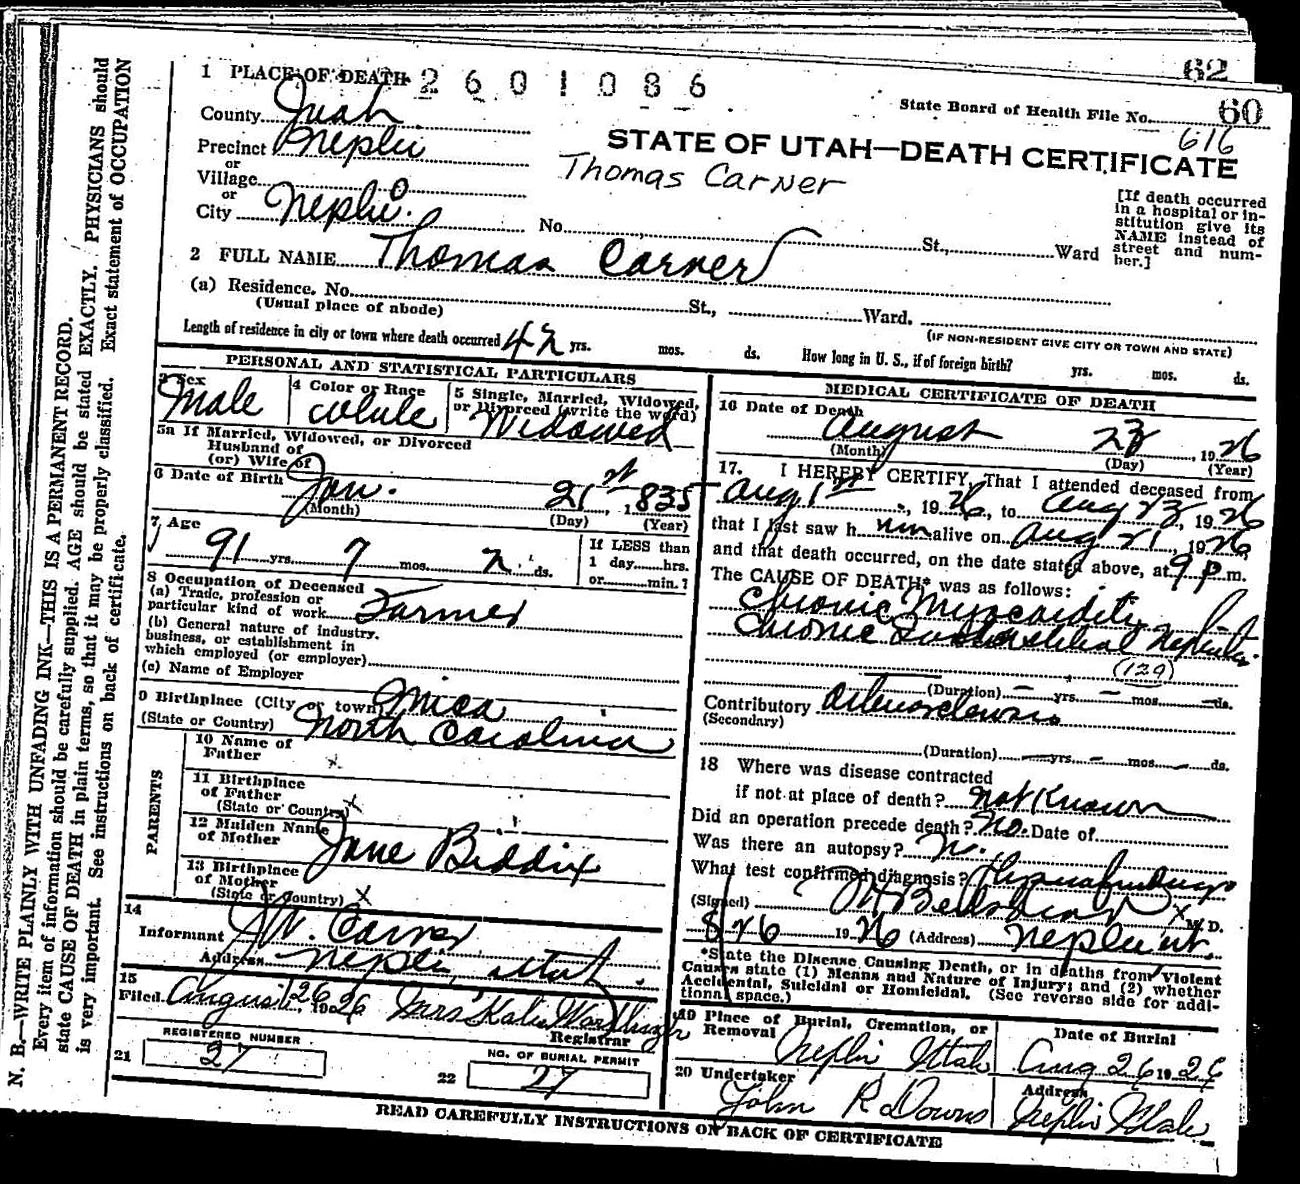 62
60
1 PLACE OF DEATH 2601086
State Board of Health File No. 616
County Juab
STATE OF UTAH—DEATH CERTIFICATE
Precinct Nephi
Thomas Carner
or
Village
or
City Nephi
No. St., Ward
[If death occurred
in a hospital or in-
stitution give its
NAME instead of
street and num-
ber.]
2 FULL NAME Thomas Carner
(a) Residence. No. St., Ward.
(Usual place of abode)
(IF NON-RESIDENT GIVE CITY OR TOWN AND STATE)
Length of residence in city or town where death occurred 42 yrs. mos. ds. How long in U. S., if of foreign birth? yrs. mos. ds.
PERSONAL AND STATISTICAL PARTICULARS
3 Sex Male
4 Color or Race White
5 Single, Married, Widowed,
or Divorced (write the word)
Widowed
5a If Married, Widowed, or Divorced
Husband of
(or) Wife of
6 Date of Birth Jan. 21st, 1835
(Month) (Day) (Year)
7 Age
91 yrs. 7 mos. 2 ds.
If LESS than
1 day hrs.
or min.?
8 Occupation of Deceased
(a) Trade, profession or
particular kind of work Farmer
(b) General nature of industry,
business, or establishment in
which employed (or employer)
(c) Name of Employer
9 Birthplace (City or town) Mica
(State or Country) North Carolina
PARENTS
10 Name of
Father x
11 Birthplace
of Father
(State or Country) x
12 Maiden Name
of Mother Jane Biddix
13 Birthplace
of Mother
(State or Country) x
14
Informant J. W. Carner
Address Nephi, Utah.
15
Filed August 26 1926 Mrs Katie
Registrar
REGISTERED NUMBER
21 27
NO. OF BURIAL PERMIT
22 27
MEDICAL CERTIFICATE OF DEATH
16 Date of Death
August 23, 1926
(Month) (Day) (Year)
17. I HEREBY CERTIFY, That I attended deceased from
Aug 1st, 1926, to Aug 23, 1926
that I last saw him alive on Aug 21, 1926
and that death occurred, on the date stated above, at 9 p.m.
The CAUSE OF DEATH* was as follows:
Chronic Myocarditis
Chronic Interstitial Nephritis
(129)
(Duration) — yrs. — mos. — ds.
Contributory Arteriosclerosis
(Secondary)
(Duration) — yrs. — mos. — ds.
18 Where was disease contracted
if not at place of death? Not Known
Did an operation precede death? No. Date of
Was there an autopsy? No.
What test confirmed diagnosis?
(Signed) x M. D.
8/26 1926 (Address) Nephi Ut.
*State the Disease Causing Death, or in deaths from Violent
Causes state (1) Means and Nature of Injury; and (2) whether
Accidental, Suicidal or Homicidal. (See reverse side for addi-
tional space.)
19 Place of Burial, Cremation, or
Removal
Nephi Utah
Date of Burial
Aug 26 1926
20 Undertaker
John R. Downs
Address
Nephi Utah
READ CAREFULLY INSTRUCTIONS ON BACK OF CERTIFICATE
N. B.—WRITE PLAINLY WITH UNFADING INK—THIS IS A PERMANENT RECORD.
Every item of information should be carefully supplied. AGE should be stated EXACTLY. PHYSICIANS should
state CAUSE OF DEATH in plain terms, so that it may be properly classified. Exact statement of OCCUPATION
is very important. See instructions on back of certificate.